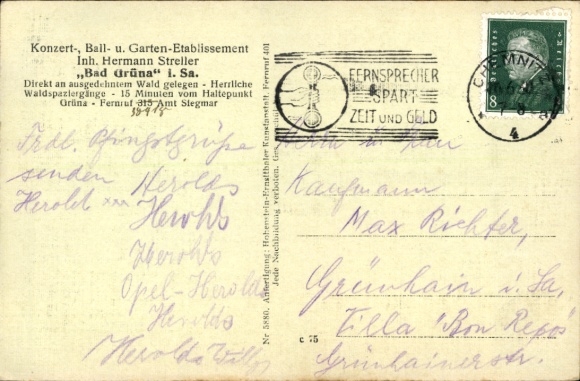 Konzert-, Ball- u. Garten-Etablissement
Inh. Hermann Streller
„Bad Grüna" i. Sa.
Direkt an ausgedehntem Wald gelegen - Herrliche
Waldspaziergänge - 15 Minuten vom Haltepunkt
Grüna - Fernruf 315 Amt Siegmar
Frdl. Pfingstgrüße
senden Herolds
Herold
Herolds
Herolds
Opel-Herolds
Herolds
Herolds Willy
Nr 5880. Anfertigung: Hohenstein-Ernstthaler Kunstanstalt Fernruf 401
Jede Nachbildung verboten.
FERNSPRECHER
SPART
ZEIT UND GELD
CHEMNITZ
4
Deutsches Reich
8
Herrn u. Frau
Kaufmann
Max Richter,
Grünhain i. Sa,
Villa "Bon Repos"
Grünhainerstr.
c 75